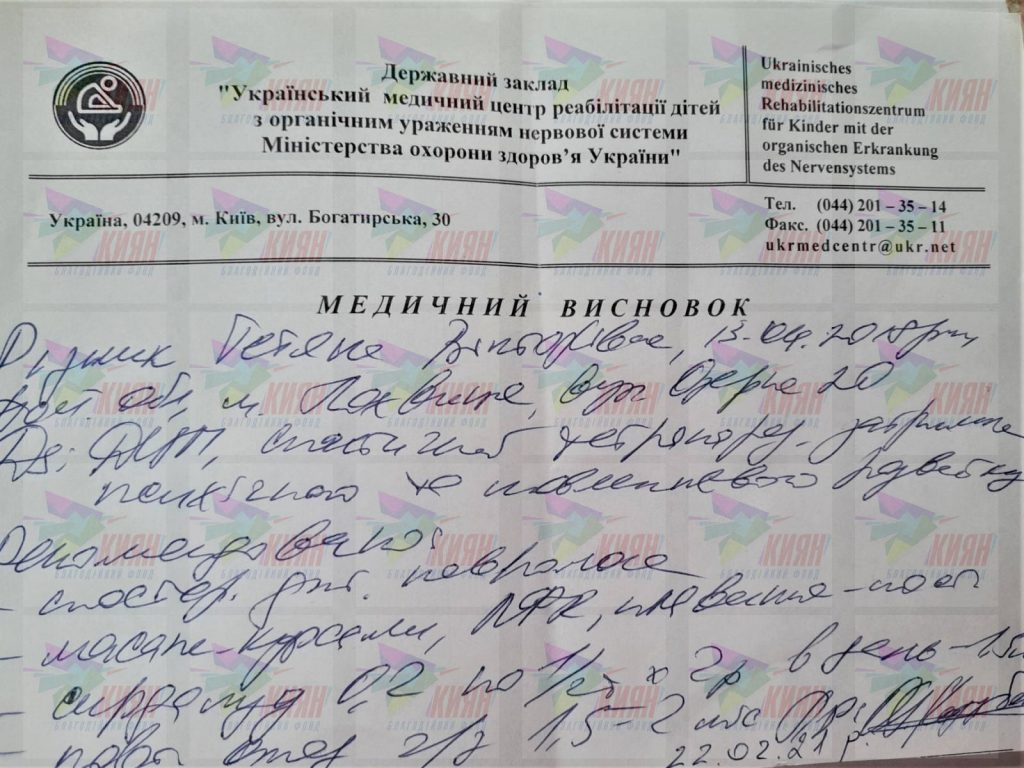 Державний заклад
"Український медичний центр реабілітації дітей
з органічним ураженням нервової системи
Міністерства охорони здоров'я України"
Ukrainisches
medizinisches
Rehabilitationszentrum
für Kinder mit der
organischen Erkrankung
des Nervensystems
Україна, 04209, м. Київ, вул. Богатирська, 30
Тел. (044) 201 – 35 – 14
Факс. (044) 201 – 35 – 11
ukrmedcentr@ukr.net
МЕДИЧНИЙ ВИСНОВОК
Тетяна Вікторівна, 13.04.2018
обл, м. Лохвиця, вул 20
Ds: ДЦП, спастичний тетрапарез, затримка
психічного та мовленнєвого розвитку
Рекомендовано:
- спостер. невролога
- масаж-курсами, ЛФК, плавання-пост
- сирдалуд 0,2 по 1/2 т х 2р в день - 1,5
- повт огляд ч/з 1,5-2
22.02.21 р.
КИЯН
БЛАГОДІЙНИЙ ФОНД